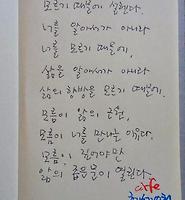 모르기 때문에 설렌다.
너를 알아서가 아니라
너를 모르기 때문에,
삶을 알아서가 아니라
삶의 향방을 모르기 때문에.
모름이 앎의 근원,
모름이 너를 만나는 이유다.
모름이 깊어야만
앎의 문이 열린다
cafe